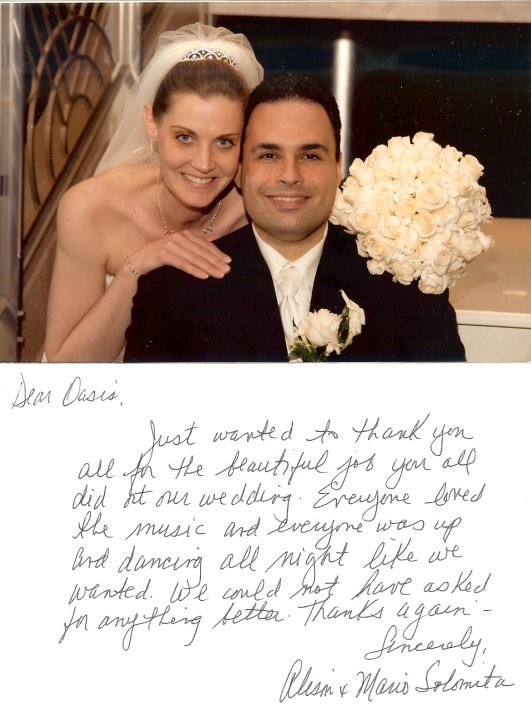 Dear Oasis,
Just wanted to thank you
all for the beautiful job you all
did at our wedding. Everyone loved
the music and everyone was up
and dancing all night like we
wanted. We could not have asked
for anything better. Thanks again -
Sincerely,
Alisin & Mario Solomita